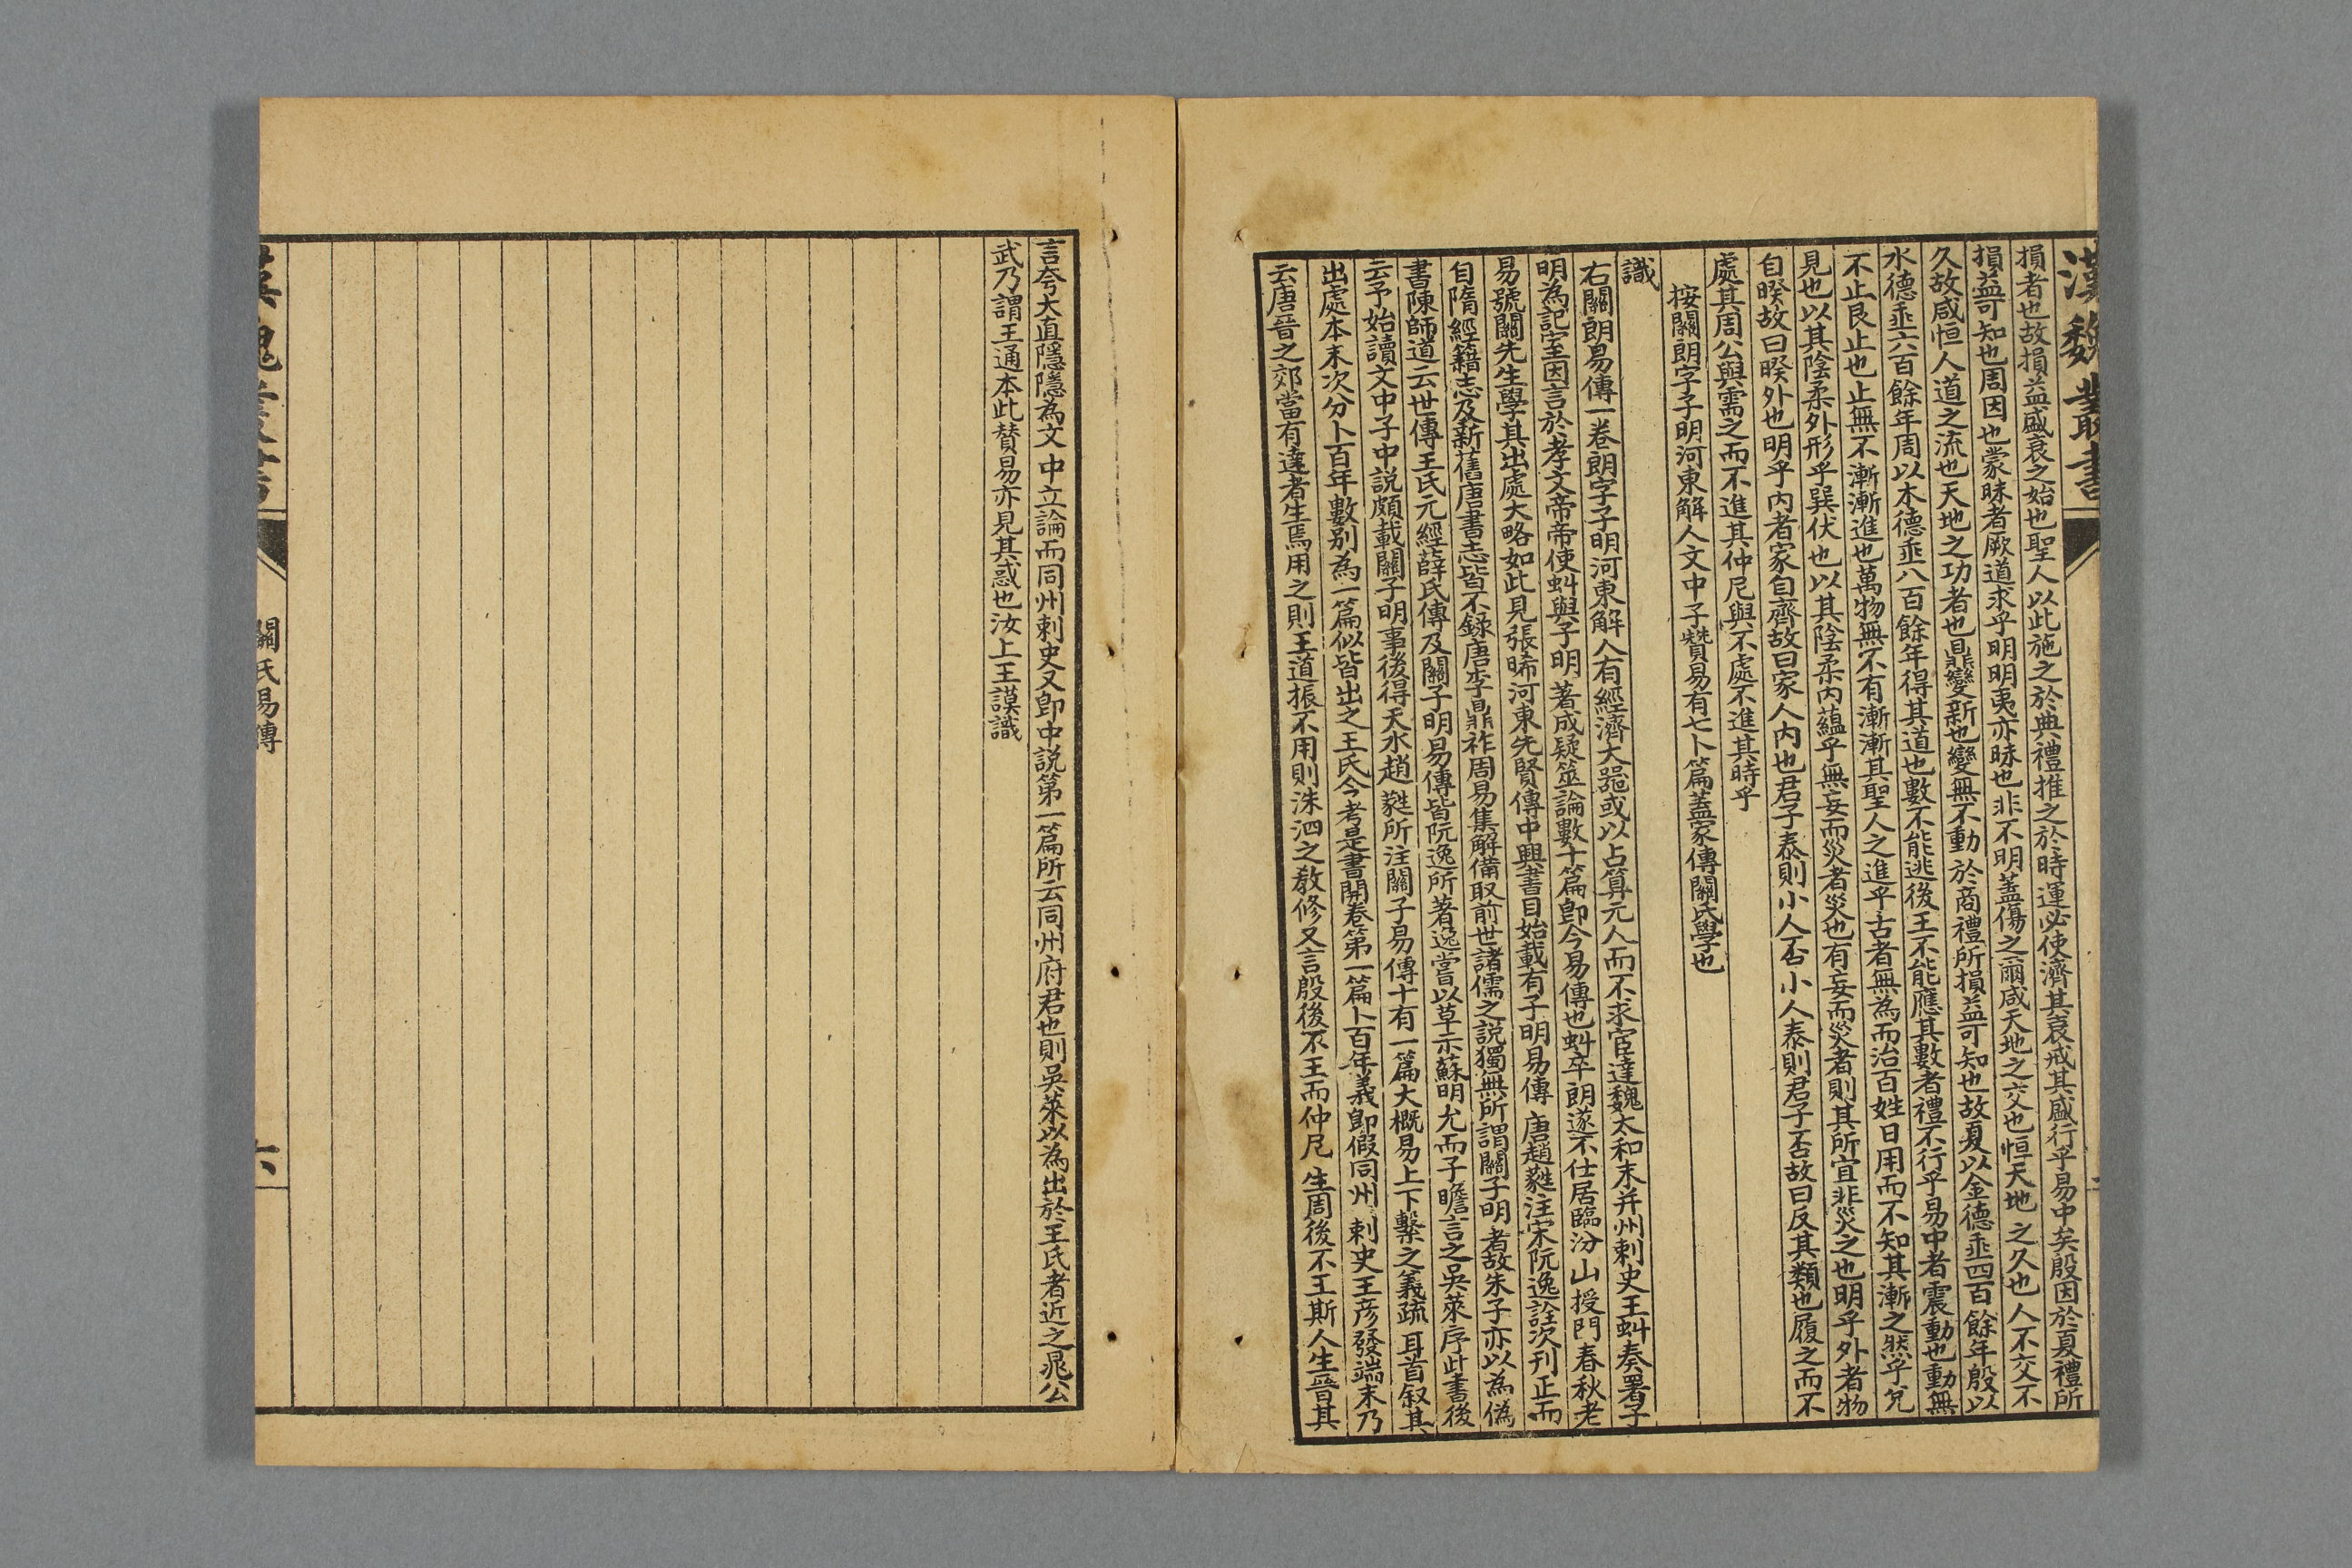 漢魏叢書
損者也故損益盛衰之始也聖人以此施之於典禮推之於時運必使濟其衰戒其盛行乎易中矣殷因於夏禮所
損益可知也周因也蒙昧者厥道求乎明明夷亦昧也非不明蓋傷之爾咸天地之交也恒天地之久也人不交不
久故咸恒人道之流也天地之功者也鼎變新也變無不動於商禮所損益可知也故夏以金德垂四百餘年殷以
水德垂六百餘年周以木德垂八百餘年得其道也數不能逃後王不能應其數者禮不行乎易中者震動也動無
不止艮止也止無不漸漸進也萬物無不有漸漸其聖人之進乎古者無為而治百姓日用而不知其漸之然乎兌
見也以其陰柔外形乎巽伏也以其陰柔內蘊乎無妄而災者災也有妄而災者則其所宜非災之也明乎外者物
自睽故曰睽外也明乎內者家自齊故曰家人內也君子泰則小人否小人泰則君子否故曰反其類也履之而不
處其周公與需之而不進其仲尼與不處不進其時乎
按關朗字子明河東解人文中子贊易有七卜篇蓋家傳關氏學也
識
右關朗易傳一卷朗字子明河東解人有經濟大噐或以占算元人而不求宦達魏太和末并州刺史王虯奏署子
明為記室因言於孝文帝帝使虯與子明著成疑筮論數十篇即今易傳也虯卒朗遂不仕居臨汾山授門春秋老
易號關先生學其出處大略如此見張晞河東先賢傳中興書目始載有子明易傳唐趙蕤注宋阮逸詮次刊正而
自隋經籍志及新舊唐書志皆不錄唐李鼎祚周易集解備取前世諸儒之說獨無所謂關子明者故朱子亦以為偽
書陳師道云世傳王氏元經薛氏傳及關子明易傳皆阮逸所著逸嘗以草示蘇明允而子瞻言之吳萊序此書後
云予始讀文中子中說頗載關子明事後得天水趙蕤所注關子易傳十有一篇大概易上下繫之義疏耳首叙其
出處本末次分卜百年數別為一篇似皆出之王氏今考是書開卷第一篇卜百年義即假同州刺史王彥發端末乃
云唐晉之郊當有達者生焉用之則王道振不用則洙泗之教修又言殷後不王而仲尼生周後不王斯人生晉其
言夸大直隱隱為文中立論而同州刺史又即中說第一篇所云同州府君也則吳萊以為出於王氏者近之晁公
武乃謂王通本此贊易亦見其惑也汝上王謨識
漢魏叢書
關氏易傳
六